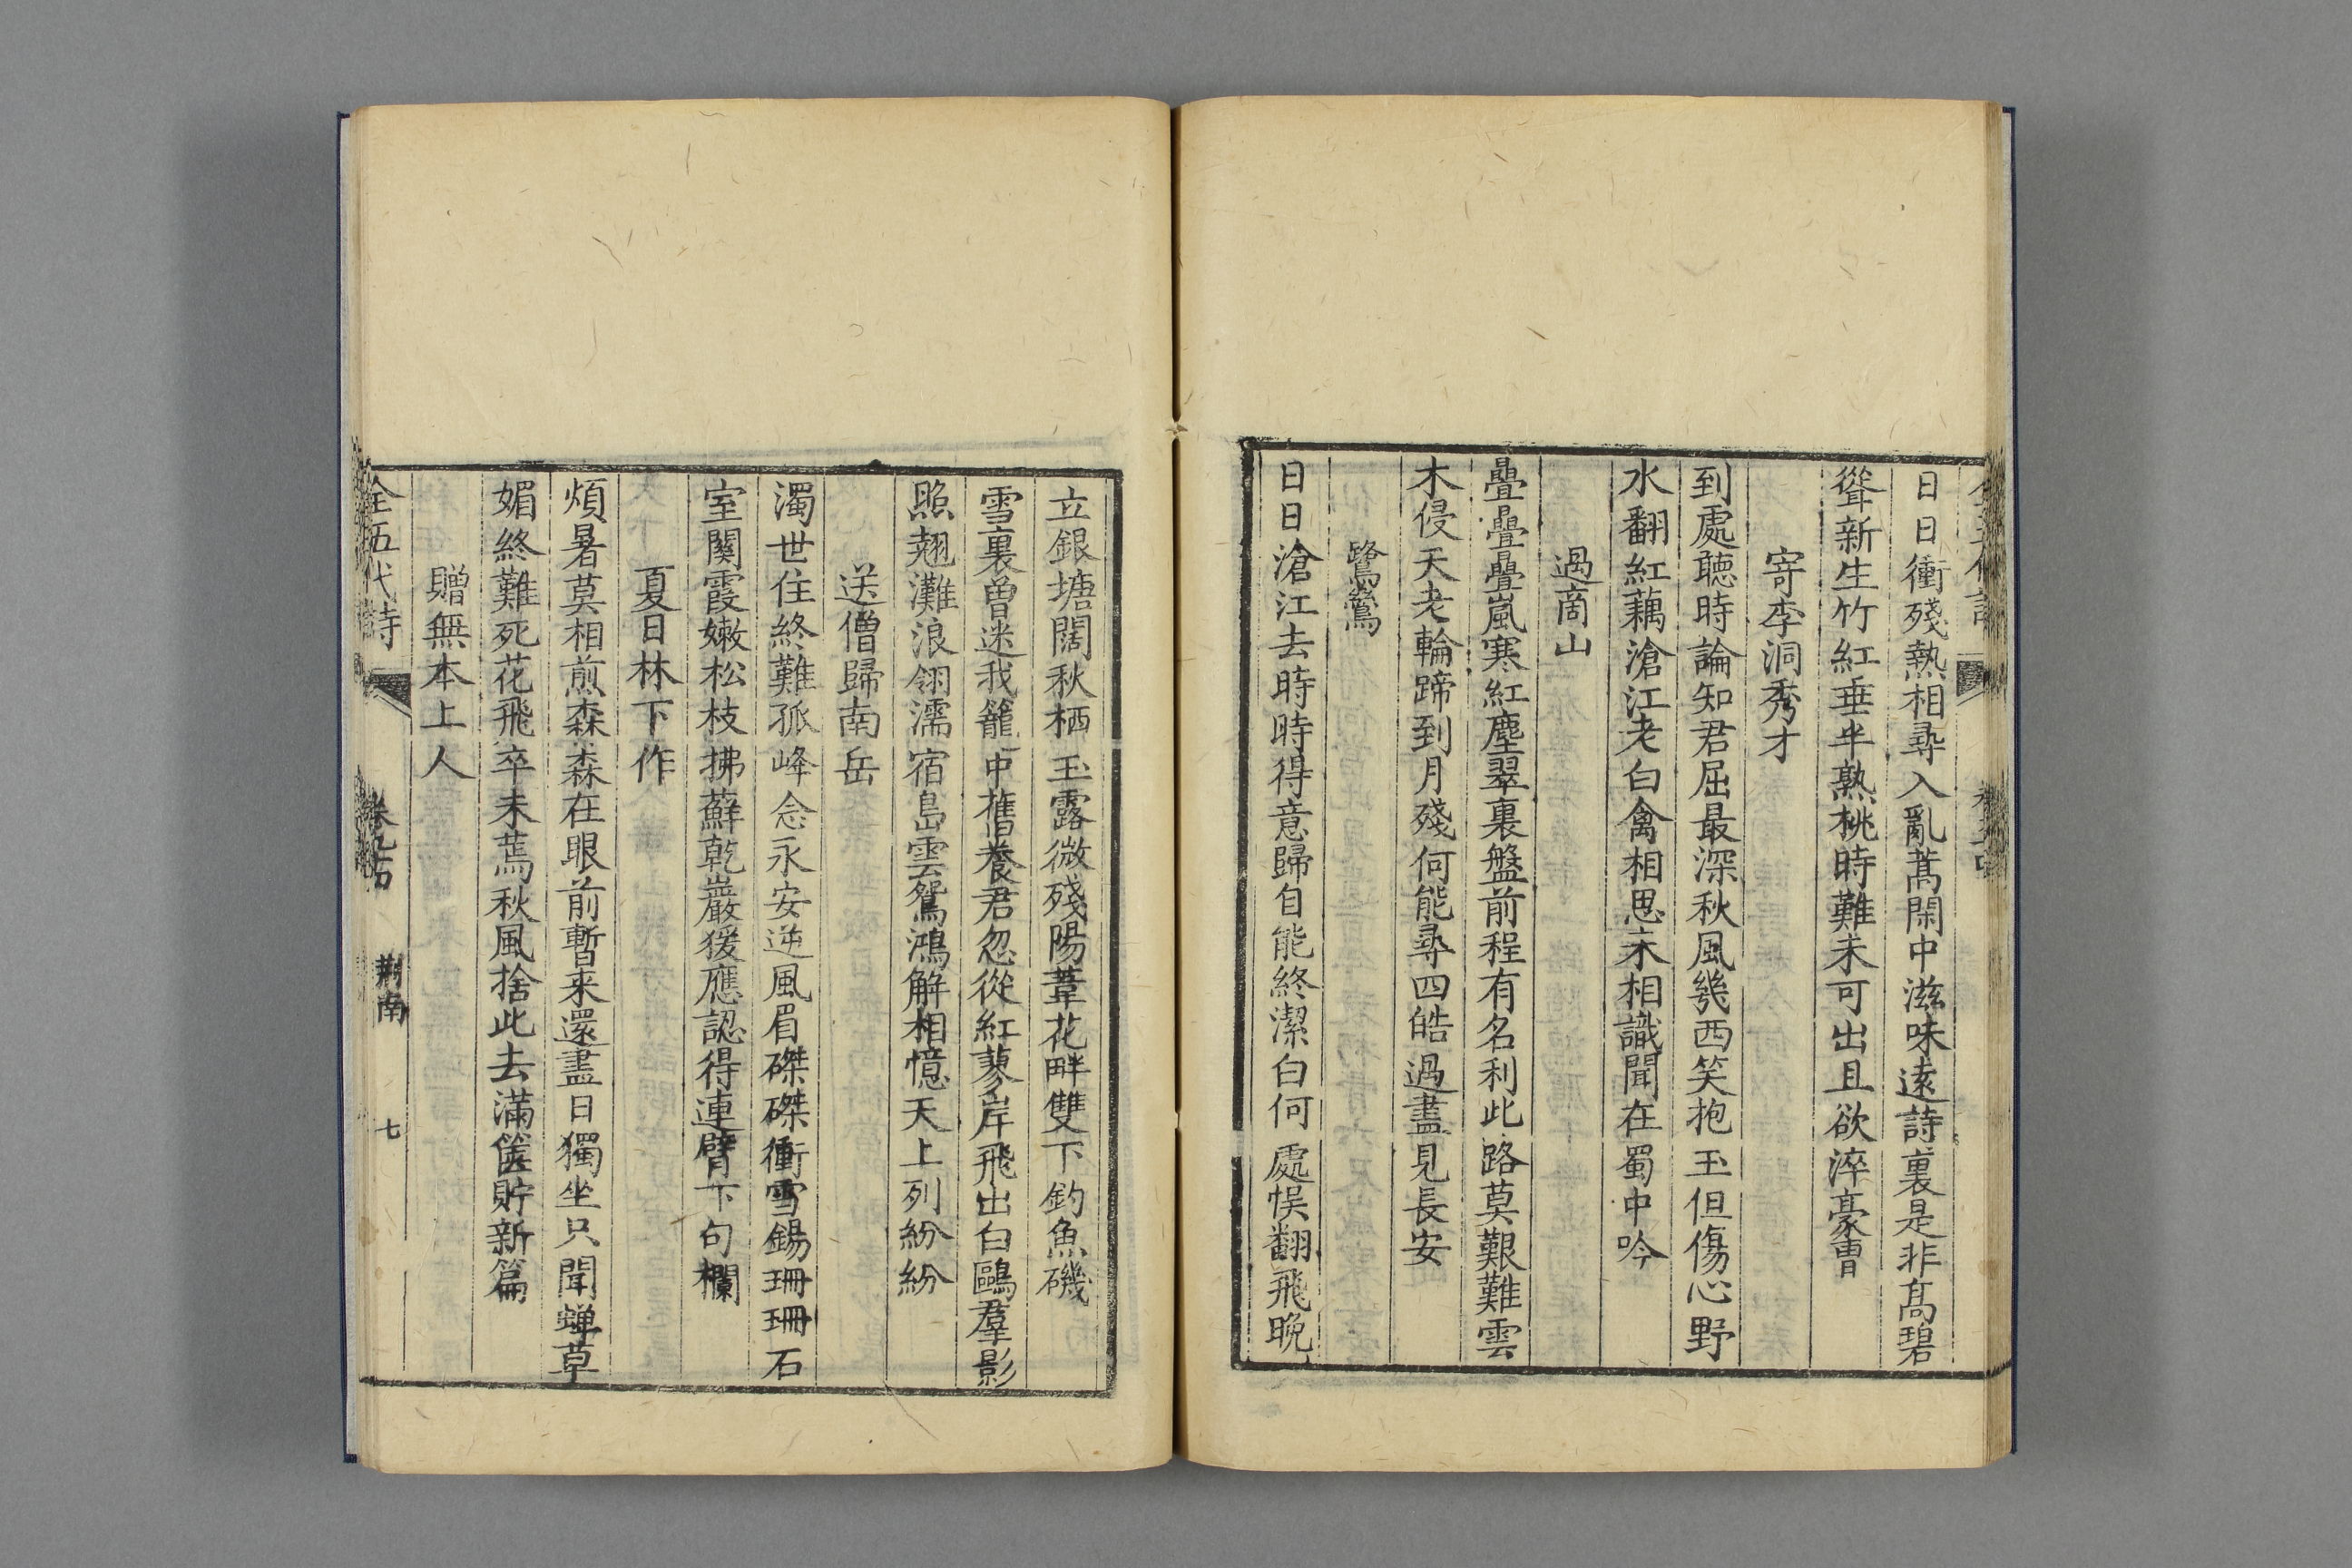 日日衝殘熱相尋入亂蒿閑中滋味遠詩裏是非髙碧
聳新生竹紅垂半熟桃時難未可出且欲淬豪曹
寄李洞秀才
到處聴時論知君屈最深秋風幾西笑抱玉但傷心野
水翻紅藕滄江老白禽相思未相識聞在蜀中吟
過商山
疊疊疊嵐寒紅塵翠裏盤前程有名利此路莫艱難雲
木侵天老輪蹄到月殘何能尋四皓過盡見長安
鷺鷥
日日滄江去時時得意歸自能終潔白何處悞翻飛晚
立銀塘闊秋栖玉露微殘陽葦花畔雙下釣魚磯
雪裏曽迷我籠中舊養君忽從紅蓼岸飛出白鷗羣影
照翹灘浪翎濡宿島雲鴛鴻解相憶天上列紛紛
送僧歸南岳
濁世住終難孤峰念永安逆風眉磔磔衝雪錫珊珊石
室關霞嫩松枝拂蘚乾巖猨應認得連臂下句欄
夏日林下作
煩暑莫相煎森森在眼前暫来還盡日獨坐只聞蝉草
媚終難死花飛卒未蔫秋風捨此去滿篋貯新篇
贈無本上人
全五代詩
荆南
七